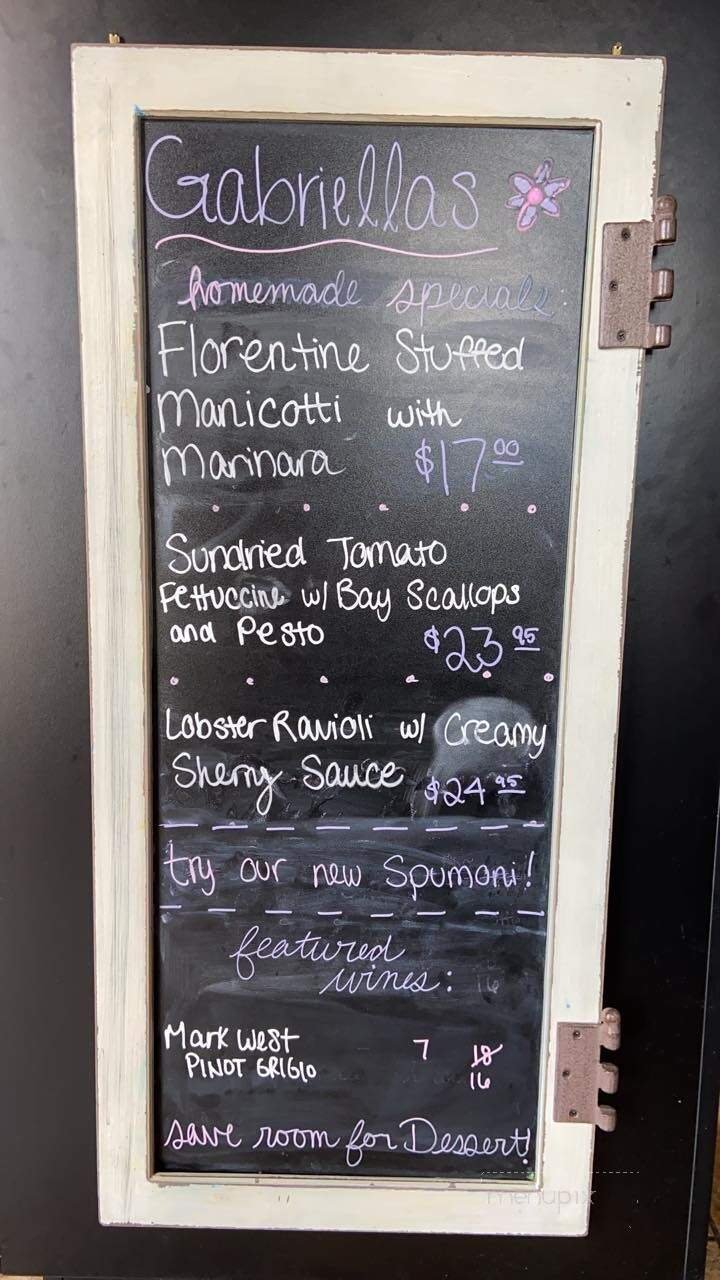 Gabriellas
homemade specials
Florentine Stuffed
Manicotti with
Marinara $17 00
Sundried Tomato
Fettuccine w/ Bay Scallops
and Pesto $23 95
Lobster Ravioli w/ Creamy
Sherry Sauce $24 95
try our new Spumoni!
featured
wines:
Mark West 7 18
PINOT GRIGIO 16
save room for Dessert!
menupix